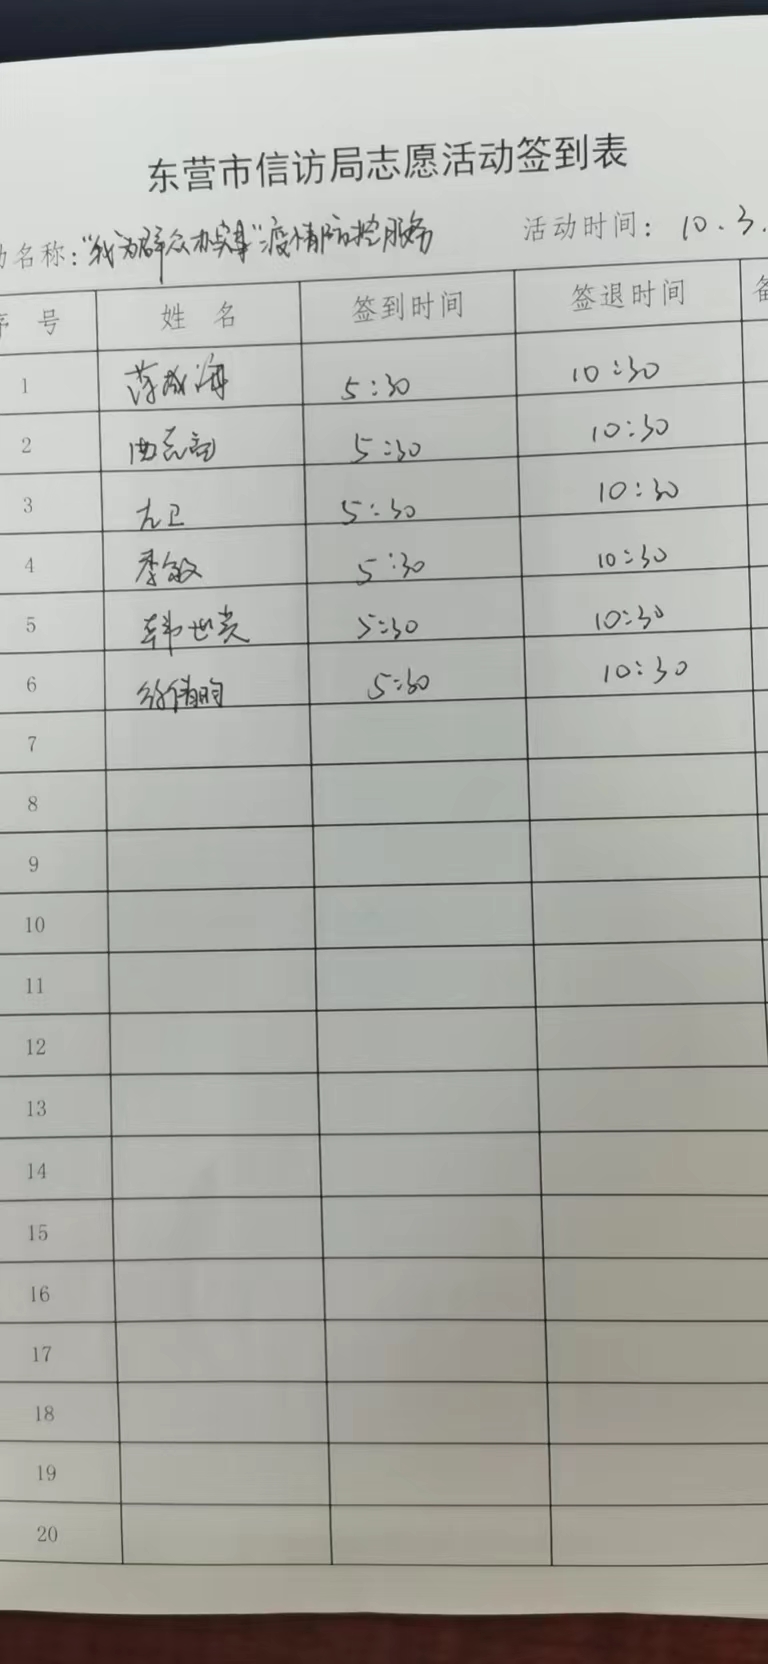 东营市信访局志愿活动签到表
动名称：“我为群众办实事”疫情防控服务 活动时间：10.3.
序 号 姓 名 签到时间 签退时间 备
1 5:30 10:30
2 5:30 10:30
3 尤卫 5:30 10:30
4 李敏 5:30 10:30
5 韩世崇 5:30 10:30
6 徐倩昀 5:30 10:30
7
8
9
10
11
12
13
14
15
16
17
18
19
20